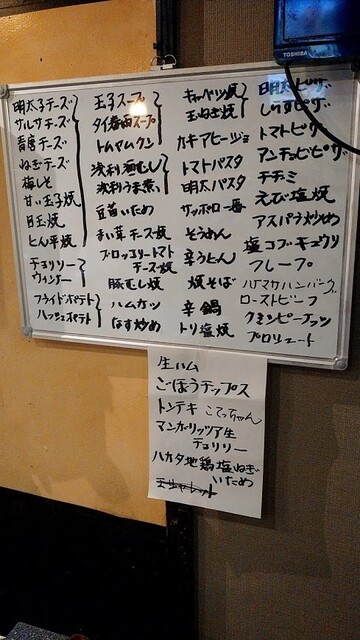 TOSHIBA
明太子チーズ
サルサチーズ
青唐チーズ
ねぎチーズ
梅しそ
甘い玉子焼
目玉焼
とん平焼
チョリソー
ウィンナー
フライドポテト
ハッシュポテト
玉子スープ
タイ春雨スープ
トムヤムクン
浅利酒むし
浅利うま煮
豆苗いため
まい茸チーズ焼
ブロッコリートマト
チーズ焼
豚むし焼
ハムカツ
なす炒め
キャベツ焼
玉ねぎ焼
カキアヒージョ
トマトパスタ
明太パスタ
サッポロ一番
そうめん
辛うどん
焼そば
辛鍋
トリ塩焼
明太ピザ
しらすピザ
トマトピザ
アンチョビピザ
チヂミ
えび塩焼
アスパラ炒め
塩コブキュウリ
クレープ
ハマサハンバーグ
ローストビーフ
クミンピーナッツ
プロシュート
生ハム
ごぼうチップス
トンテキ こてっちゃん
マンガリッツア生
チョリソー
ハカタ地鶏塩ねぎ
いため